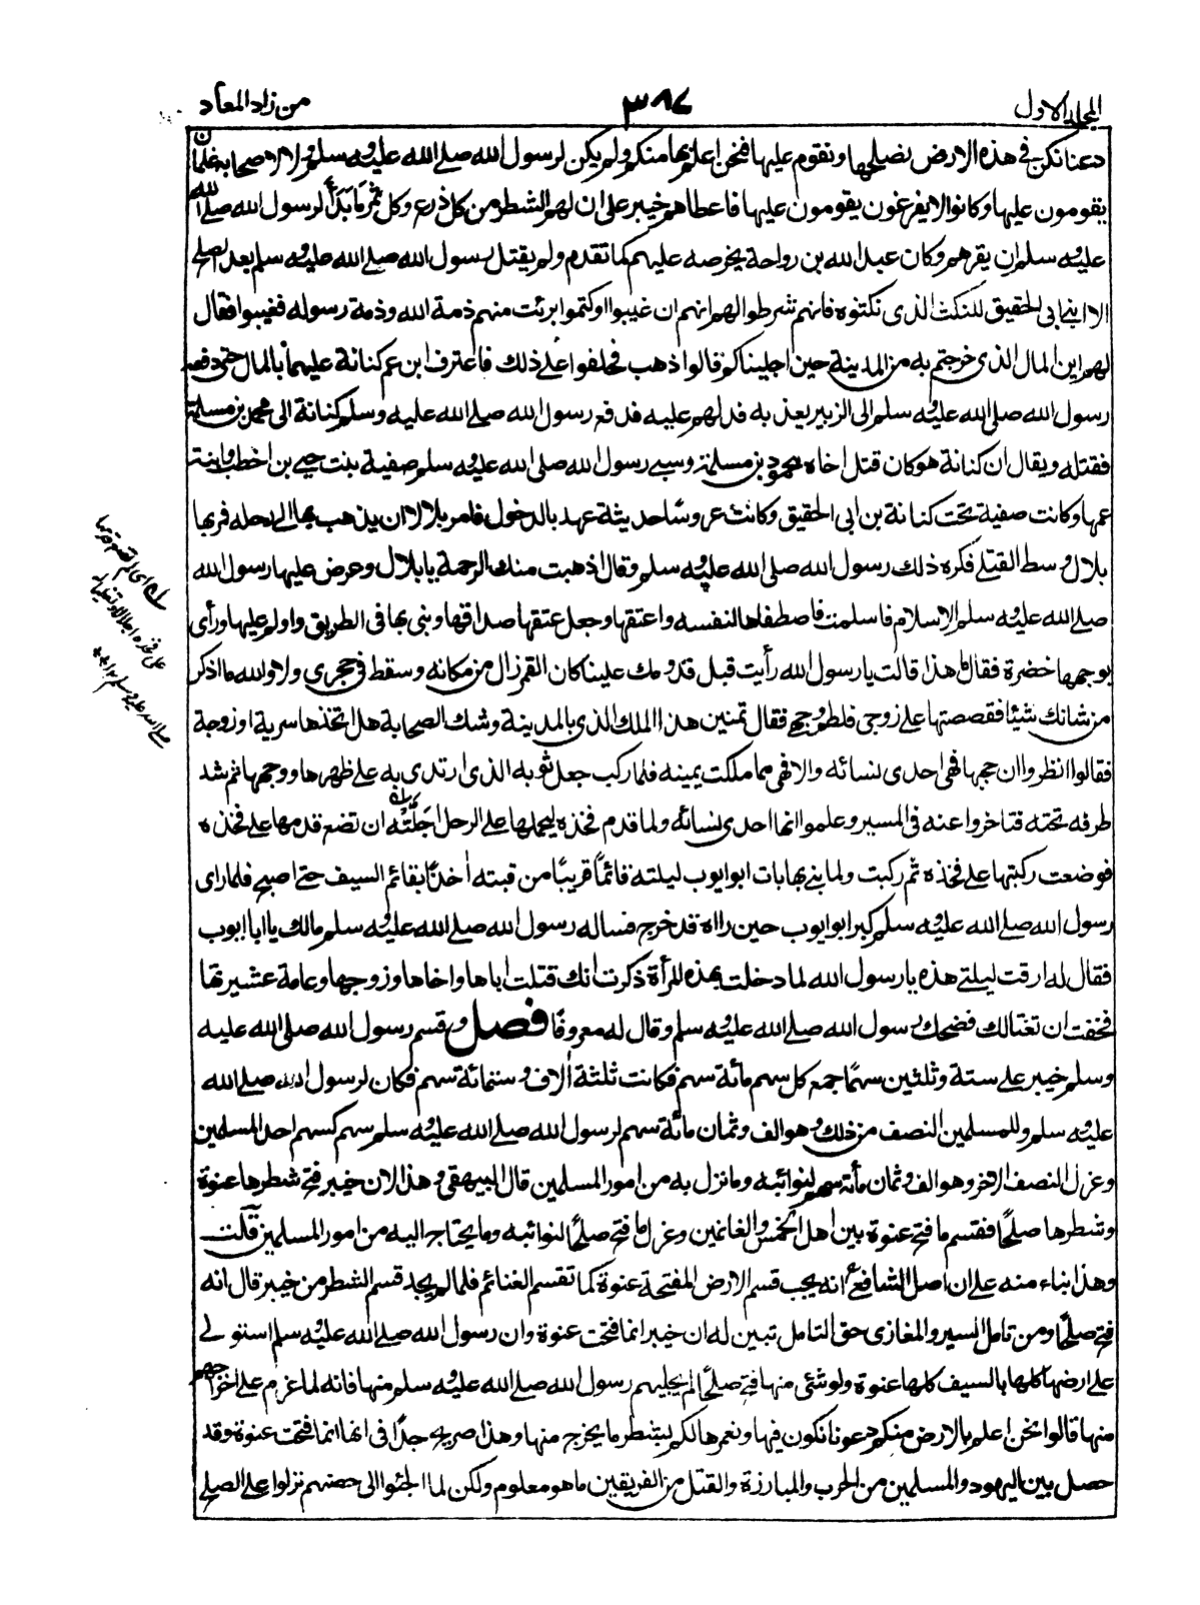 المجلد الاول
٣٨٧
من زاد المعاد
دعنا نكن في هذه الارض نصلحها ونقوم عليها فنحن اعلم بها منكم ولم يكن لرسول الله صلى الله عليه وسلم ولا لاصحابه غلمان
يقومون عليها وكانوا لا يفرغون يقومون عليها فاعطاهم خيبر على ان لهم الشطر من كل ذرع وكل ثمر ما بدأ لرسول الله صلى الله
عليه وسلم ان يقرهم وكان عبد الله بن رواحة يخرصه عليهم كما تقدم ولم يقتل رسول الله صلى الله عليه وسلم بعد الصلح
الا ابني ابى الحقيق للنكث الذى نكثوه فانهم شرطوا لهم انهم ان غيبوا او كتموا برئت منهم ذمة الله وذمة رسوله فغيبوا فقال
لهم اين المال الذى خرجتم به من المدينة حين اجليناكم قالوا ذهب فحلفوا على ذلك فاعترف ابن عم كنانة عليهما بالمال حتى دفعه
رسول الله صلى الله عليه وسلم الى الزبير يعذبه فدلهم عليه فدفع رسول الله صلى الله عليه وسلم كنانة الى محمد بن مسلمة
فقتله ويقال ان كنانة هو كان قتل اخاه محمود بن مسلمة وسبى رسول الله صلى الله عليه وسلم صفية بنت حيي بن اخطب وابنة
عمها وكانت صفية تحت كنانة بن ابى الحقيق وكانت عروسًا حديثة عهد بالدخول فامر بلالا ان يذهب بها الى رحله فمر بها
بلال وسط القتلى فكره ذلك رسول الله صلى الله عليه وسلم وقال اذهبت منك الرحمة يا بلال وعرض عليها رسول الله
صلى الله عليه وسلم الاسلام فاسلمت فاصطفاها لنفسه واعتقها وجعل عتقها صداقها وبنى بها في الطريق واولم عليها ورأى
بوجهها خضرة فقال ما هذا قالت يا رسول الله رأيت قبل قدومك علينا كان القمر زال من مكانه وسقط في حجرى ولا والله ما اذكر
من شانك شيئا فقصصتها على زوجى فلطم وجهى فقال تمنين هذا الملك الذى بالمدينة وشك الصحابة هل اتخذها سرية او زوجة
فقالوا انظروا ان حجبها فهى احدى نسائه والا فهى مما ملكت يمينه فلما ركب جعل ثوبه الذى ارتدى به على ظهرها ووجهها ثم شد
طرفه تحته فتاخروا عنه في المسير وعلموا انها احدى نسائه ولما قدم فخذه ليحملها على الرحل اجلّته ان تضع قدمها على فخذه
فوضعت ركبتها على فخذه ثم ركبت ولما بنى بها بات ابو ايوب ليلته قائمًا قريبًا من قبته أخذًا بقائم السيف حتى اصبح فلما راى
رسول الله صلى الله عليه وسلم كبر ابو ايوب حين راٰه قد خرج فساله رسول الله صلى الله عليه وسلم مالك يا ابا ايوب
فقال له ارقت ليلتى هذه يا رسول الله لما دخلت بهذه المرأة ذكرت انك قتلت اباها واخاها وزوجها وعامة عشيرتها
فخفت ان تغتالك فضحك رسول الله صلى الله عليه وسلم وقال له معروفًا فصل وقسم رسول الله صلى الله عليه
وسلم خيبر على ستة وثلثين سهمًا جمع كل سهم مائة سهم فكانت ثلثة اٰلاف وستمائة سهم فكان لرسول الله صلى الله
عليه وسلم وللمسلمين النصف من ذلك وهو الف وثمان مائة سهم لرسول الله صلى الله عليه وسلم سهم كسهم احد المسلمين
وعزل النصف الاخر وهو الف وثمان مأئة سهم لنوائبه وما نزل به من امور المسلمين قال البيهقى وهذا لان خيبر فتح شطرها عنوة
وشطرها صلحًا فقسم ما فتح عنوة بين اهل الخمس والغانمين وعزل ما فتح صلحًا لنوائبه وما يحتاج اليه من امور المسلمين قلت
وهذا بناء منه على ان اصل الشافعى انه يجب قسم الارض المفتحة عنوة كما تقسم الغنائم فلما لم يجد قسم الشطر من خيبر قال انه
فتح صلحًا ومن تامل السير والمغازى حق التامل تبين له ان خيبر انما فتحت عنوة وان رسول الله صلى الله عليه وسلم استولى
على ارضها كلها بالسيف كلها عنوة ولو شئ منها فتح صلحًا لم يجلهم رسول الله صلى الله عليه وسلم منها فانه لما عزم على اخراجهم
منها قالوا نحن اعلم بالارض منكم دعونا نكون فيها ونعمرها لكم بشطر ما يخرج منها وهذا صريح جدًا في انها انما فتحت عنوة وقد
حصل بين اليهود والمسلمين من الحرب والمبارزة والقتل من الفريقين ما هو معلوم ولكن لما الجئوا الى حصنهم نزلوا على الصلح